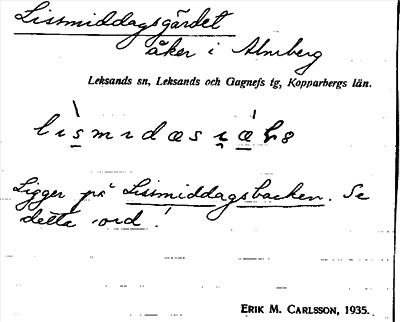 Lissmiddagsgärdet
åker i Almberg
Leksands sn, Leksands och Gagnefs tg, Kopparbergs län.
Ligger på Lissmiddagsbacken. Se
detta ord!
ERIK M. CARLSSON, 1935.